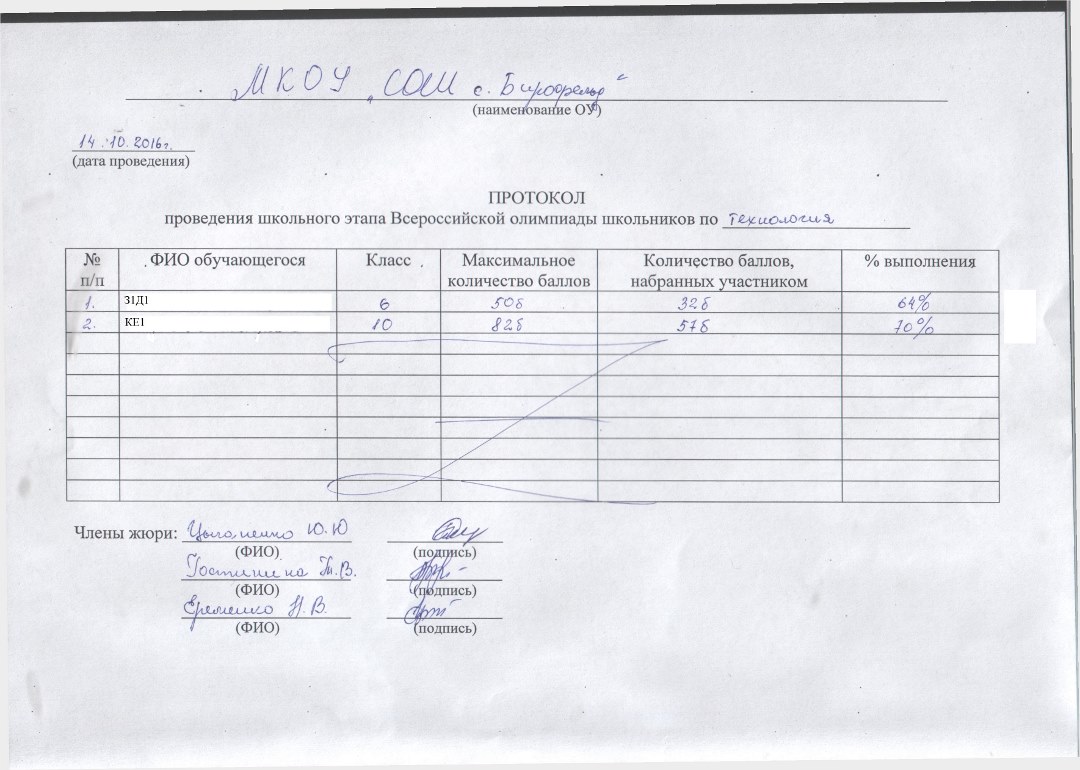 МКОУ "СОШ с. Бирофельд"
(наименование ОУ)
14.10.2016г.
(дата проведения)
ПРОТОКОЛ
проведения школьного этапа Всероссийской олимпиады школьников по технология
№ п/п ФИО обучающегося Класс Максимальное количество баллов Количество баллов, набранных участником % выполнения
1. З1Д1 6 50б 32б 64%
2. КЕ1 10 82б 57б 70%
Члены жюри: Ю.Ю
(ФИО) (подпись)
Т.В.
(ФИО) (подпись)
Еременко Н.В.
(ФИО) (подпись)